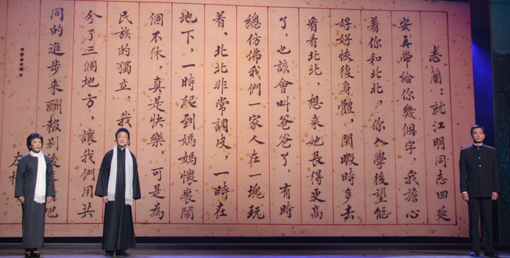 志蘭：就江明同志回延
安具帶給你幾個字。我擔心
着你和北北。你入學後望能
好好恢復身體，閑暇時多去
看看北北，想來她長得更高
了，也該會叫爸爸了，有時
總仿佛我們一家人在一塊玩
着，北北非常調皮，一時在
地下，一時爬到媽媽懷裏鬧
個不休，真是快樂，可是為
民族的獨立，我
分了三個地方，讓我們用共
同的進步來酬報別 吧
……
左權